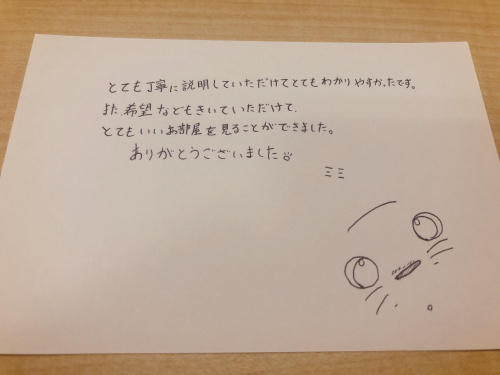 とても丁寧に説明していただけてとてもわかりやすかったです。
また、希望などもきいていただけて、
とてもいいお部屋を見ることができました。
ありがとうございました
ミミ